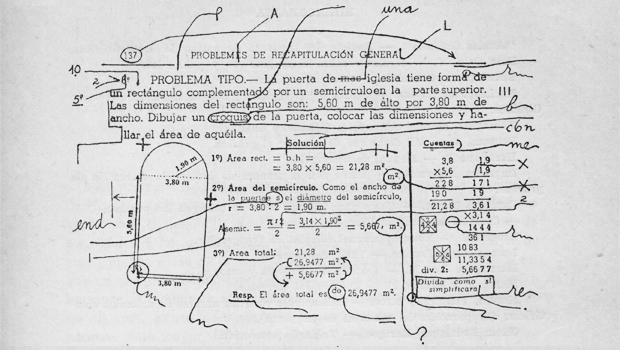 P A una L
137 PROBLEMES DE RECAPITULACIÓN GENERAL
10
PROBLEMA TIPO.— La puerta de mas iglesia tiene forma de
un rectángulo complementado por un semicírculo en la parte superior.
Las dimensiones del rectángulo son: 5,60 m de álto por 3,80 m de
ancho. Dibujar un croquis de la puerta, colocar las dimensiones y ha-
llar el área de aquéila.
III
cbn
me
end
Solución
1º) Area rect. = b.h =
= 3,80 × 5,60 = 21,28 m²
2º) Area del semicírculo. Como el ancho de
la puertae s el diámetro del semicírculo,
r = 3,80 : 2 = 1,90 m.
A semic. = π r² / 2 = 3,14 × 1,90² / 2 = 5,667 m².
3º) Area total: 21,28 m²
26,9477 m²
+ 5,6677 m²
Resp. El área total es do 26,9477 m².
1,90 m
3,80 m
5,60 m
3,80 m
Cuentas
3,8 1,9
×5,6 1,9
228 171
190 19
21,28 3,61
×3,14
1444
361
1083
11,3354
div. 2: 5,6677
Divida como si
simplificara
re
?